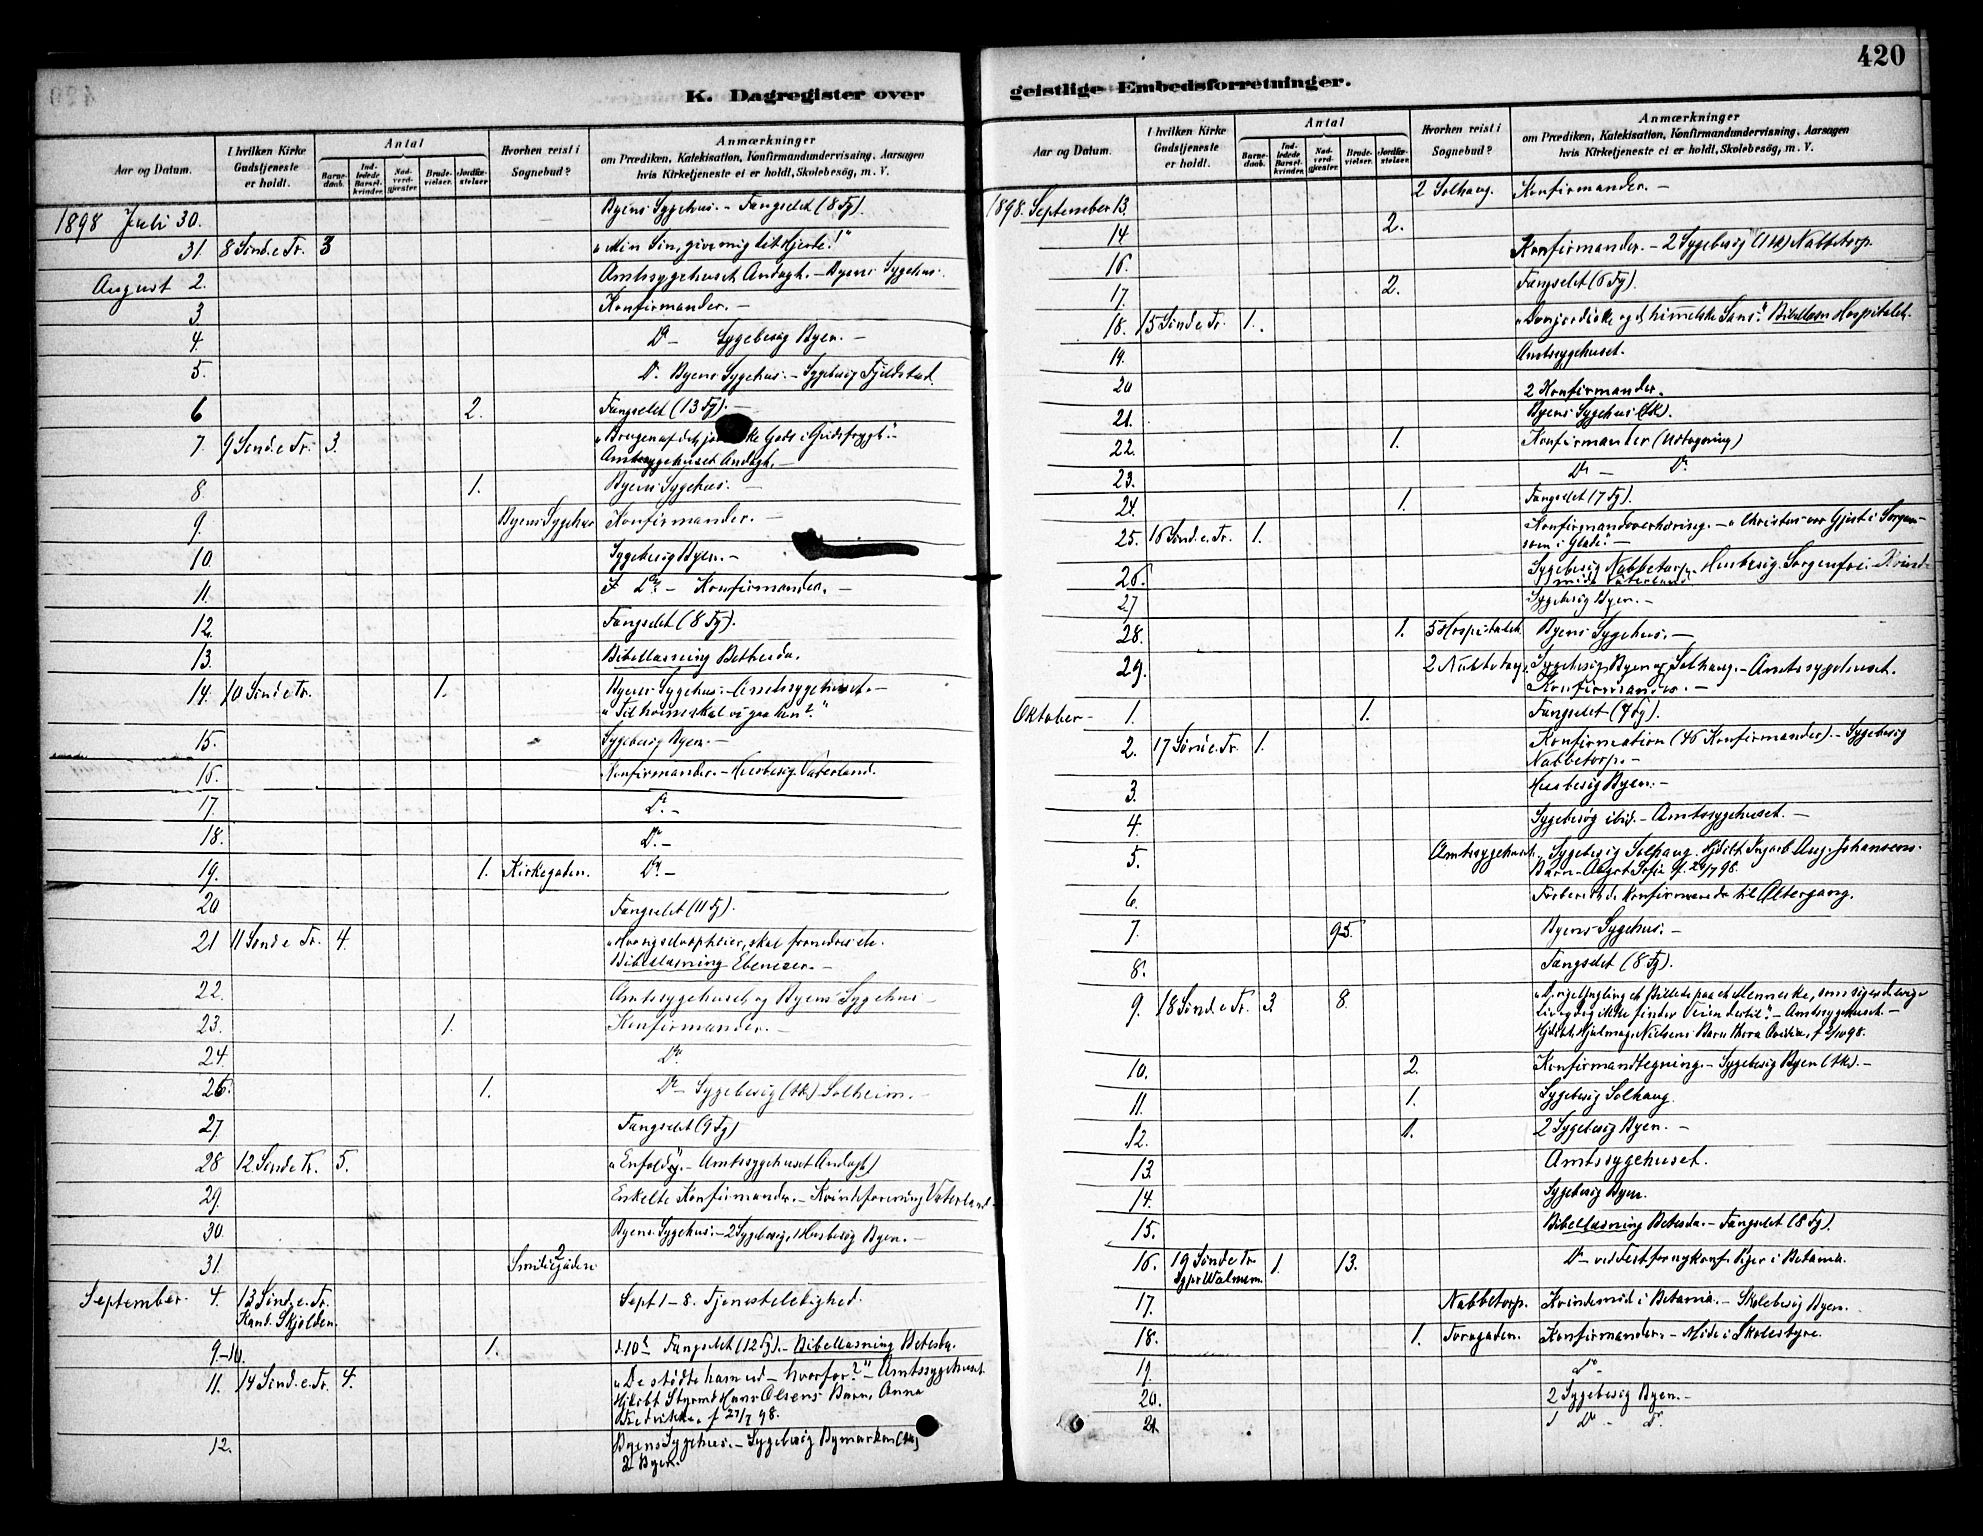 420
K. Dagregister over
geistlige Embedsforretninger.
Aar og Datum.
I hvilken Kirke Gudstjeneste er holdt.
Antal
Barnedaab.
Indledede Barselkvinder.
Nadverdgjester.
Brudevielser.
Jordfæstelser.
Hvorhen reist i Sognebud?
Anmærkninger
om Prædiken, Katekisation, Konfirmandundervisning, Aarsagen
hvis Kirketjeneste ei er holdt, Skolebesøg, m. V.
1898 Juli 30. Byens Sygehus. – Fængselet (8 Fg).
31. 8 Sønd. e. Tr. 3 "Min Søn, giv mig dit Hjerte!"
August 2. Amtssygehuset Andagt. – Byens Sygehus.
3 Konfirmander. –
4. Do – Sygebesøg Byen. –
5. Do. Byens Sygehus. – Sygebesøg Fjeldstad.
6 2. Fængselet (13 Fg). –
7. 9 Sønd. e. Tr. 3. "Brugen af det Gods i Gudsfrygt." –
Amtssygehuset Andagt. –
8. 1. Byens Sygehus. –
9. Byens Sygehus Konfirmander. –
10. Sygebesøg Byen. –
11. Do – Konfirmander. –
12. Fængselet (8 Fg).
13. Bibellæsning Bethesda.
14. 10 Sønd e Tr. 1. Byens Sygehus. – Amtssygehuset. –
"Til hvem skal vi gaa hen?"
15. Sygebesøg Byen. –
16. Konfirmander. – Husbesøg Vaterland.
17. Do. –
18. Do. –
19. 1. Kirkegaden. Do –
20 Fængselet (11 Fg).
21 11 Sønd e Tr. 4.
Bibellæsning Ebenezer. –
22. Amtssygehuset og Byens Sygehus –
23. 1. Konfirmander. –
24. Do.
26. 1. Do – Sygebesøg (Ak) Solheim. –
27 Fængselet (9 Fg)
28 12 Sønd e Tr. 5. – Amtssygehuset Andagt
29. Enkelte Konfirmander. – Kvindeforening Vaterland.
30. Byens Sygehus. – 2 Sygebesøg, 1 Husbesøg Byen. –
31. 2
Smedegaden
September. 4. 13 Sønd. e. Tr. Sept 1–8. Tjenesteledighed.
Kand. Skjolden.
9.–10. 1. d. 10de Fængselet (12 Fg). – Bibellæsning Betesda.
11. 14 Sønd. e. Tr. 4. "De stødte ham ud – hvorfor?" – Amtssygehuset
Hans Olsens Barn, Anna
f 27/7 98.
12. Byens Sygehus. – Sygebesøg Bymarken (Ak)
2 Byen.
Aar og Datum.
I hvilken Kirke Gudstjeneste er holdt.
Antal
Barnedaab.
Indledede Barselkvinder.
Nadverdgjester.
Brudevielser.
Jordfæstelser.
Hvorhen reist i Sognebud?
Anmærkninger
om Prædiken, Katekisation, Konfirmandundervisning, Aarsagen
hvis Kirketjeneste ei er holdt, Skolebesøg, m. V.
1898. September 13. 2 Solhaug. Konfirmander. –
14 2.
16. Konfirmander. – 2 Sygebesøg (1 Ak) Nabbetorp.
17. 2. Fængselet (6 Fg).
18. 15 Sønd e Tr. 1. "Den jordiske og d. himmelske Sans." Bibellæsn Hospitalet.
19. Amtssygehuset.
20 2 Konfirmander.
21. Byens Sygehus (Ak).
22. 1. Konfirmander (Udtagning)
23. Do – Do
24. 1. Fængselet (7 Fg).
25. 16 Sønd. e. Tr. 1. Konfirmandoverhøring. – "Christus vor Gjest i Sorgen
som i Glæde." –
26. Sygebesøg Nabbetorp. – Husbesøg Sorgenfri.
Vaterland
27 Sygebesøg Byen. –
28. 1. 5 Hospitalet. Byens Sygehus. –
29. 2 Nabbetorp. Sygebesøg Byen og Solhaug. – Amtssygehuset.
Konfirmander. –
Oktober – 1. 1. Fængselet (7 Fg).
2. 17 Sønd e. Tr. 1. Konfirmation (46 Konfirmander). – Sygebesøg
Nabbetorp. –
3. Husbesøg Byen. –
4. Sygebesøg ibid. – Amtssygehuset. –
5. Amtssygehuset. Sygebesøg Solhaug. Aug. Johansens
Barn Sofie f. 29/7 98.
6. Forbered. de Konfirmerede til Altergang.
7. 95. Byens Sygehus. –
8. Fængselet (8 Fg).
9. 18 Sønd. e. Tr. 3. 8. Billede paa et Menneske, som
ikke finder Veien dertil." – Amtssygehuset. –
Nielsens Barn f 2/10 98.
10. 2. Konfirmandtegning. – Sygebesøg Byen (Ak). –
11. 1. Sygebesøg Solhaug.
12. 1. 2 Sygebesøg Byen. –
13. Amtssygehuset.
14. Sygebesøg Byen.
15. Bibellæsning Betesda. – Fængselet (8 Fg).
16. 19 Sønd e Tr 1. 13. Do – ved Fest for ny konf. Piger i Betania.
17. Nabbetorp. Kvindemøde i Betania. – Skolebesøg Byen.
18. 1. Torvgaden. Konfirmander. – Møde i Skolestyre.
19. Do –
20. 2 Sygebesøg Byen. –
21 1 Do – Do.